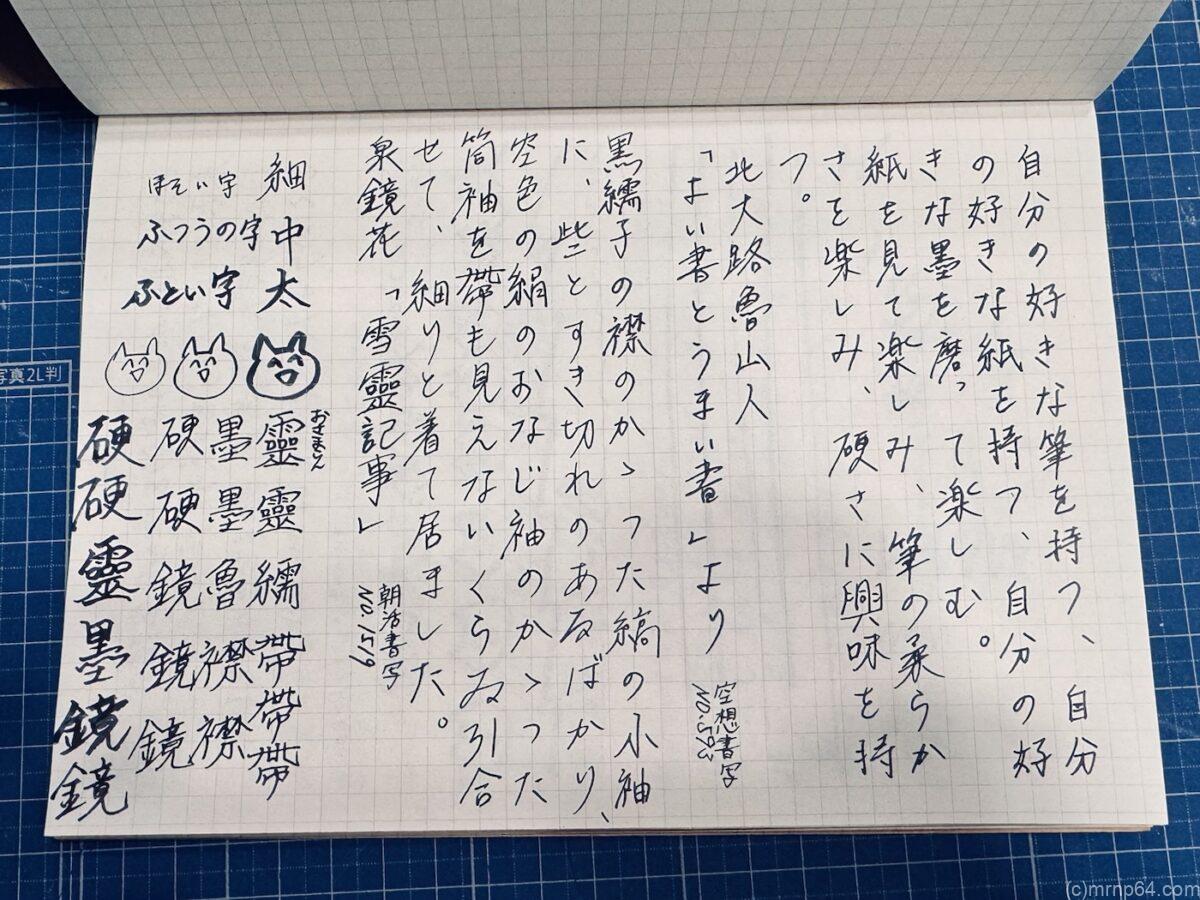 自分の好きな筆を持つ、自分
の好きな紙を持つ、自分の好
きな墨を磨って楽しむ。
紙を見て楽しみ、筆の柔らか
さを楽しみ、硬さに興味を持
つ。
北大路魯山人
「よい書とうまい書」より
空想書写
NO.593
黒繻子の襟のかゝつた縞の小袖
に、些とすき切れのあるばかり、
空色の絹のおなじ袖のかゝつた
筒袖を帯も見えないくらゐ引合
せて、細りと着て居ました。
泉鏡花 「雪靈記事」
朝活書写
NO.1519
細 中 太
ほそい字
ふつうの字
ふとい字
おまけ
靈 靈 繻 帶 帶 帶
墨 墨 魯 襟 襟
硬 硬 鏡 鏡 鏡
硬 硬 靈 墨 鏡 鏡
写真2L判
(c)mrnp64.com